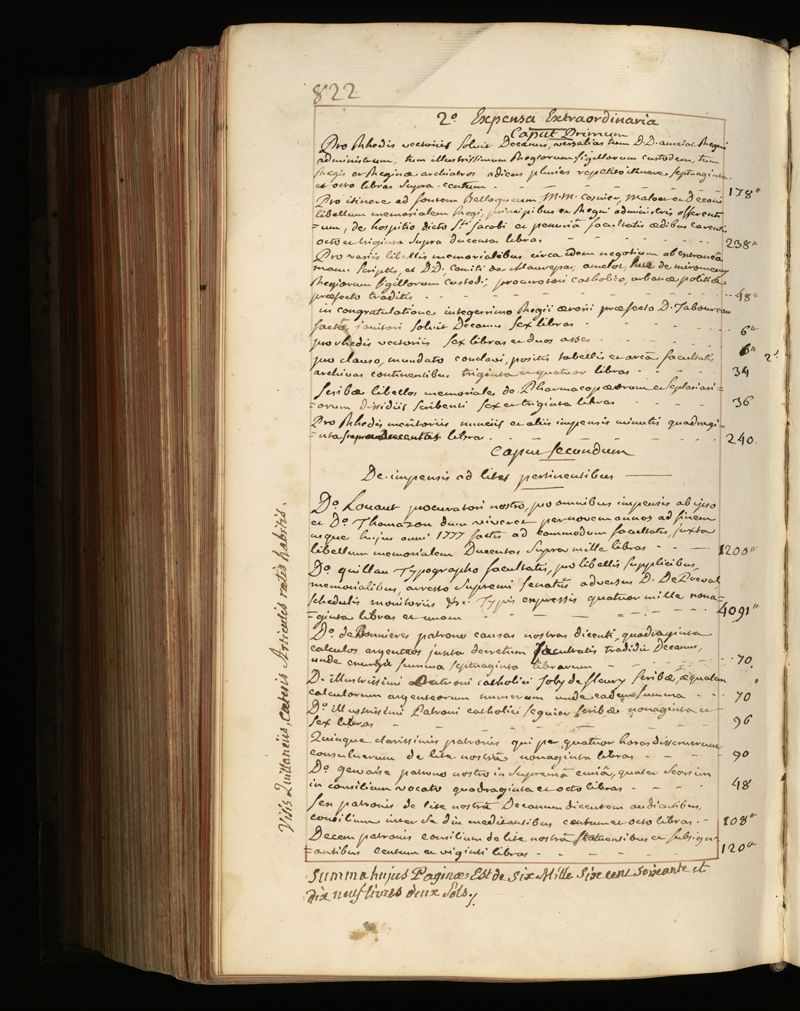 822
2º Expensa Extraordinaria
Caput Primum
Pro Rhedis vectoriis solvit Decanus, versalias tum D.D. amelot Regni
administrum, tum illustrissimum Regiorum Sigillorum custodem, tum
Regis et Reginæ archiatros adiens pluries repetito itinere septuaginta
et octo libras supra centum - - - 178"
Pro itinere ad fontem Bellaqueum M.M. cosnier, Maloet et Decani
libellum memorialem Regi, principibus et Regni administris offerenti-
=um, de hospitio dicto Sti Jacobi et penuriâ facultatis ædibus carentis
octo et triginta supra ducentas libras - - - 238"
Pro variis libellis memorialibus circa idem negotium ab extraneâ
manu scriptis, et D.D. Comiti de Maurepas, amelot, hue de miromeny
Regiorum sigillorum custodi, procuratori catholico, urbanæ politiæ
præfecto traditis - - - 48"
in congratulatione integerrimo Regii ærarii præfecto D. Taboureau
factâ janitori solvit Decanus sex libras - - - 6"
pro rhedis vectoriis sex libras et duos asses - - - 6" 2s
pro clauso, mundato conclavi, positis tabellis et arcâ facultatis
archivas continentibus triginta et quatuor libras - - - 34
Scribæ libellos memoriales de Pharmacopæorum et Seplasiari-
=orum dissidiis scribenti sex et triginta libras - - - 36
Pro Rhedis meritoriis nunciis et aliis impensis minutis quadragi-
=nta supra ducentas libra - - - 240.
Caput secundum
De impensis ad lites pertinentibus
Do. Louaut procuratori nostro, pro omnibus impensis ab ipso
et Do. Thomazon dum viveret per novem annos ad finem
usque hujus anni 1777 factis ad commodum facultatis, juxta
libellum memorialem Ducentas supra mille libras - - - 1200"
Do. quillau Typographo facultatis, pro libellis supplicibus,
memorialibus, arresto supremi senatus adversus D. De Preval
schedulis monitoriis &c. Typis expressis quatuor mille nona-
=ginta libras et unam - - - 4091"
Do. de Bonnieres patrono causas nostras dicenti, quadraginta
calculos argenteos juxta decretum facultatis tradidit Decanus,
unde emergit summa septuaginta librarum - - - 70
D. illustrissimi Patroni catholici Joly de fleury scribæ, æqualem
calculorum argenteorum numerum unde eadem summa - - - 70
Do. illustrissimi Patroni catholici Seguier scribæ nonaginta et
sex libras - - - 96
Quinque clarissimis patronis qui per quatuor horas disseruerunt
consulueruntque de lite nostrâ nonaginta libras - - - 90
Do. gervaise patrono nostro in supremâ curiâ, quater seorsim
in consilium vocato quadraginta et octo libras - - - 48
Sex patronis de lite nostrâ Decanum dicentem audientibus,
consilium inter se diu meditantibus centum et octo libras - 108"
Decem patronis consilium de lite nostrâ statuentibus et subsign-
=antibus centum et viginti libras - - - 120"
Summa hujus Paginæ Est de six Mille Six cent soixante et
dix neuf livres deux sols./
Visis Quittanciis, cæteris Articulis ratis habitis.